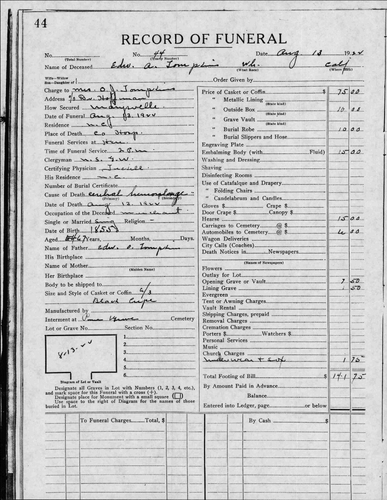 44
RECORD OF FUNERAL
No. No. 44 Date Aug 13 19
(Total Number) (Yearly Number)
Name of Deceased Edw. A. Wh. Calif
(What Race) (Where Born)
Wife—Widow
Son—Daughter of Order Given by
Charge to Mrs. O. J.
Address
How Secured
Date of Funeral Aug
Residence
Place of Death Co Hosp.
Funeral Services at
Time of Funeral Service 2 P.M.
Clergyman N. S. G. W.
Certifying Physician
His Residence
Number of Burial Certificate
Cause of Death cerebral hemorrhage
(Primary) (Secondary)
Date of Death Aug
Occupation of the Deceased merchant
Single or Married Religion
Date of Birth 1855
Aged Years, Months, Days.
Name of Father Edw.
His Birthplace
Name of Mother
(Maiden Name)
Her Birthplace
Body to be shipped to
Size and Style of Casket or Coffin 6/3
Black Crepe
Manufactured by
Interment at Cemetery
Lot or Grave No. Section No.
1.
2.
3.
4.
5.
6.
7.
8-13-22
Diagram of Lot or Vault
Designate all Graves in Lot with Numbers (1, 2, 3, 4, etc.), and mark space for this Funeral with a cross (+).
Designate place for Monument with a small square (□)
Use space to the right of Diagram for the names of those buried in Lot.
Price of Casket or Coffin $ 75 00
" Metallic Lining
(State kind)
" Outside Box 10 00
(State kind)
" Grave Vault
(State kind)
" Burial Robe 10 00
(State kind)
" Burial Slippers and Hose
Engraving Plate
Embalming Body (with Fluid) 15 00
Washing and Dressing
Shaving
Disinfecting Rooms
Use of Catafalque and Drapery
" Folding Chairs
" Candelabrum and Candles
Gloves $ Crape $
Door Crape $ Canopy $
Hearse 15 00
Carriages to Cemetery @ $
Automobiles to Cemetery @ $ 6 00
Wagon Deliveries @ $
City Calls (Coaches) @ $
Death Notices in Newspapers
(Names of Newspapers)
Flowers
Outlay for Lot
Opening Grave or Vault 7 50
Lining Grave 1 50
Evergreens
Tent or Awning Charges
Vault Rental
Shipping Charges, prepaid
Removal Charges
Cremation Charges
Porters $ Watchers $
Personal Services
Music
Church Charges
underwear + sox 1 75
Total Footing of Bill $ 141 75
By Amount Paid in Advance
Balance
Entered into Ledger, page or below
To Funeral Charges Total, $
By Cash $